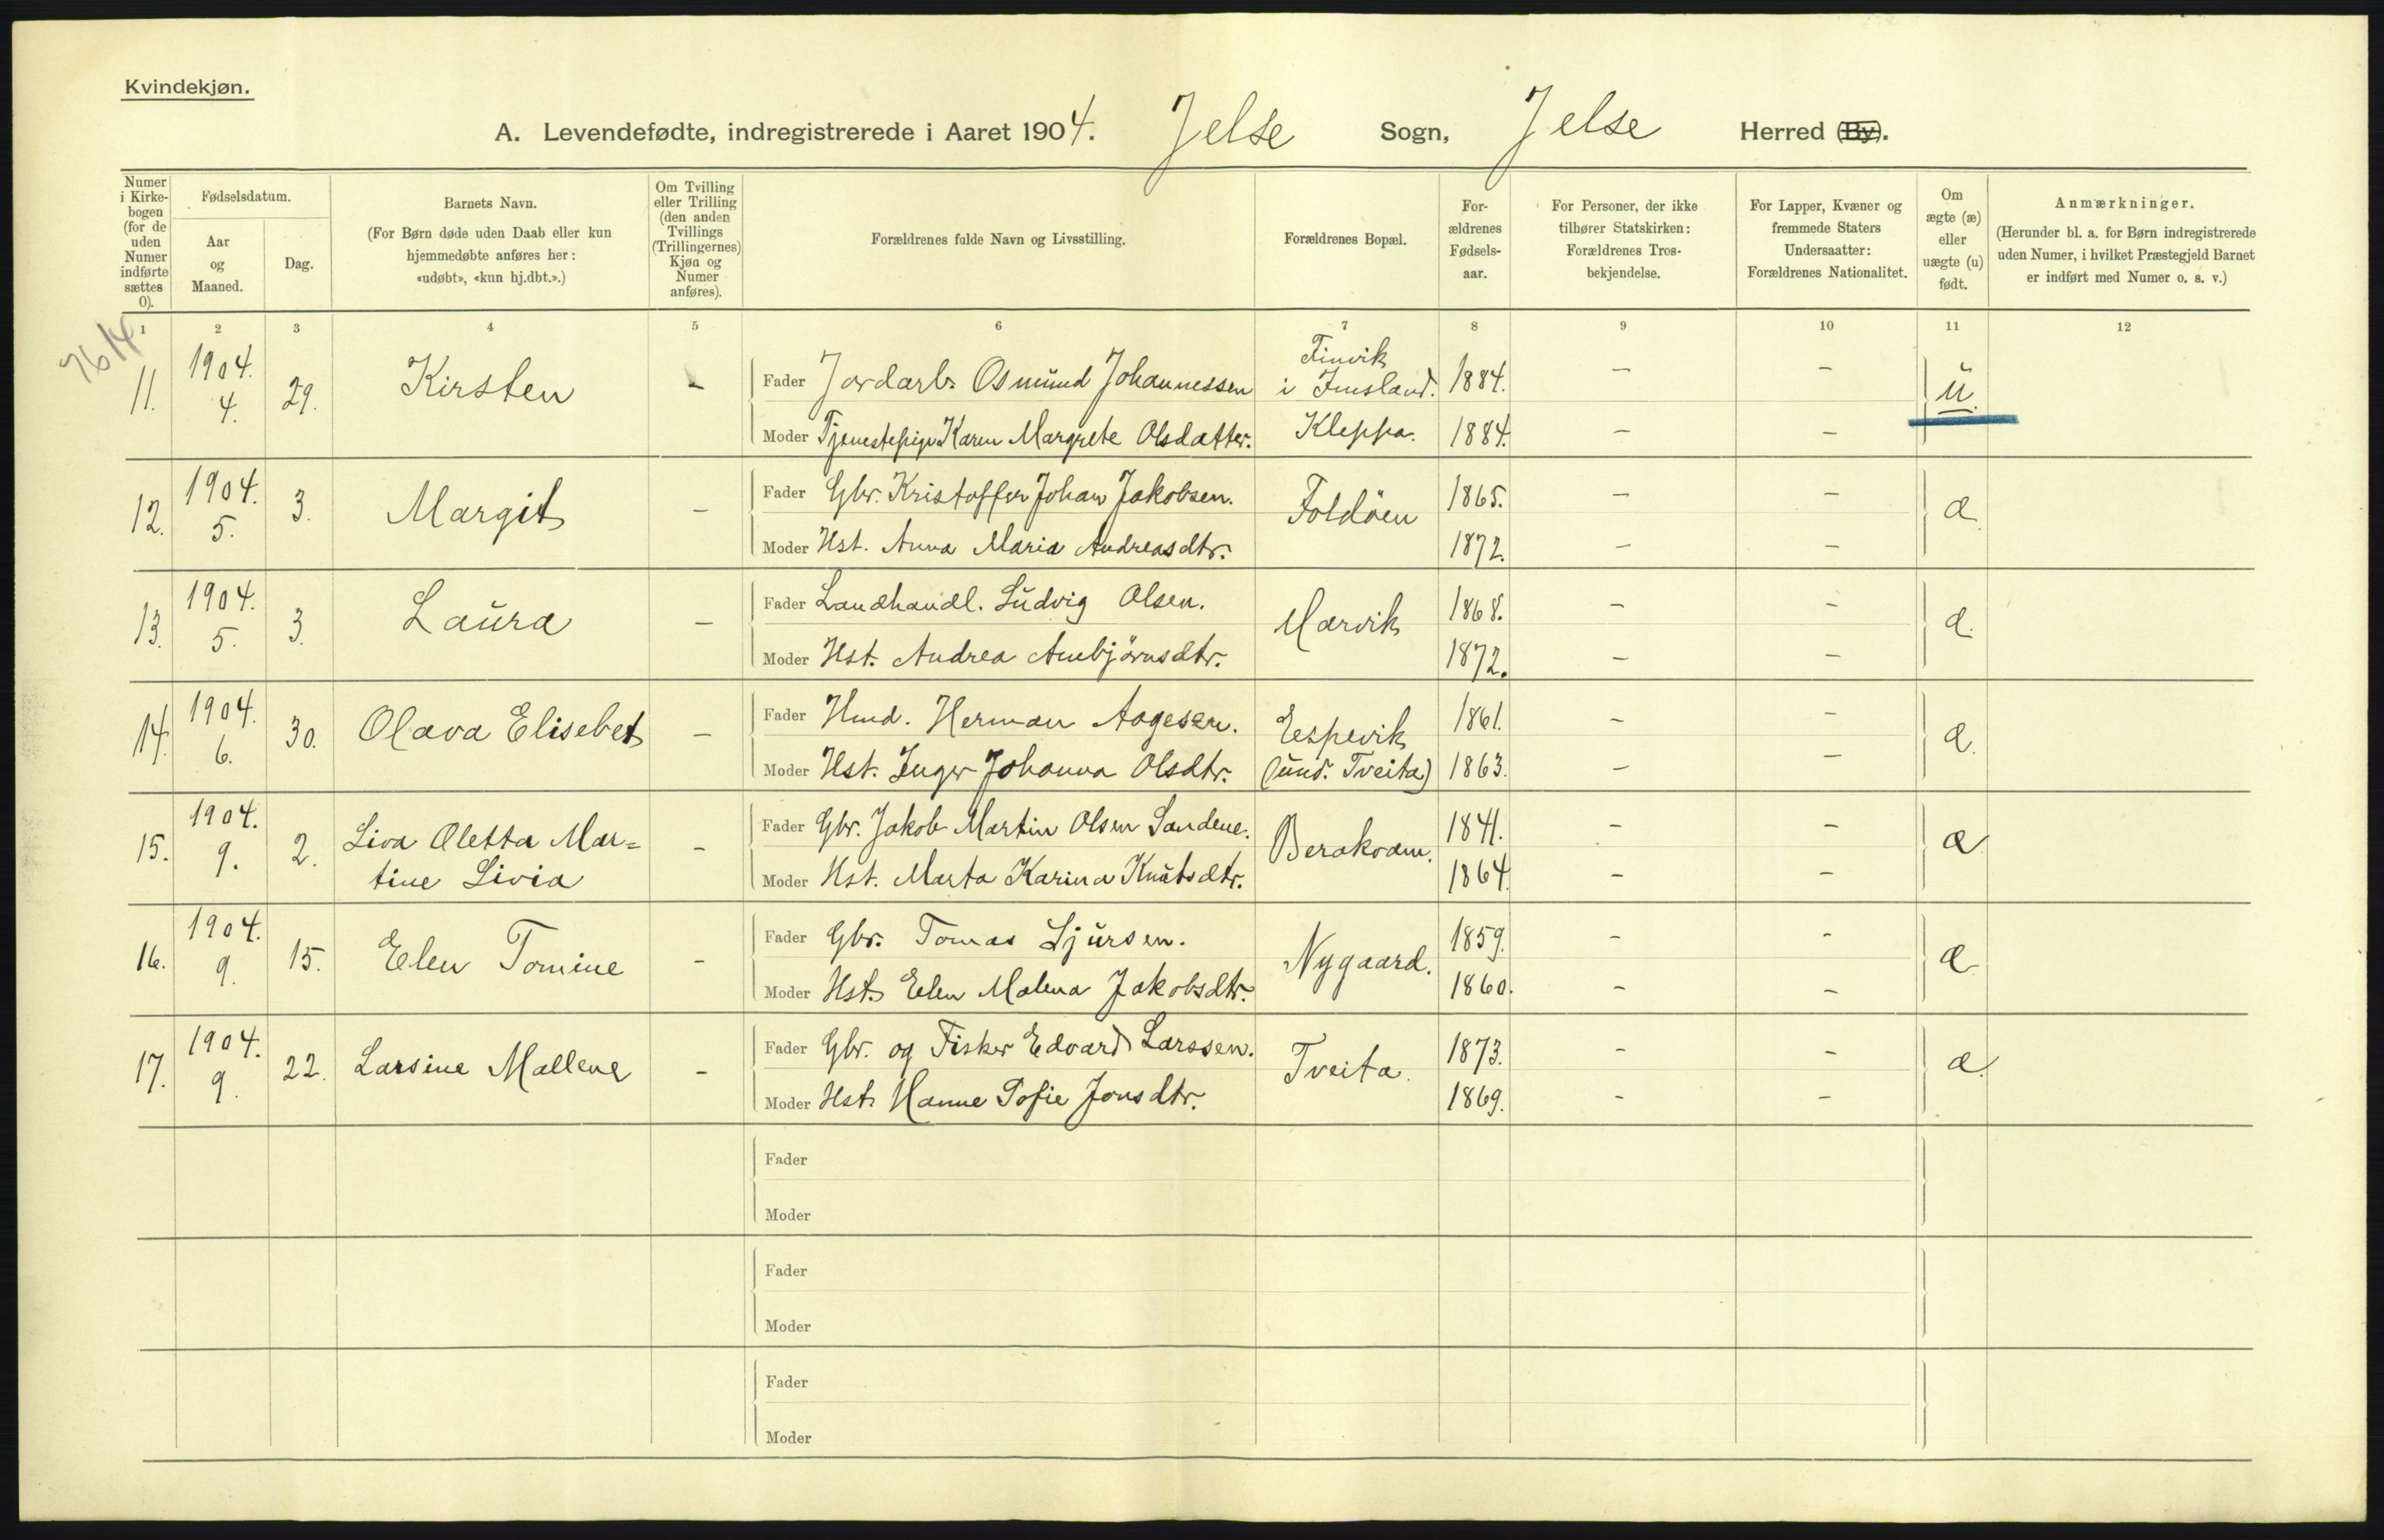 Kvindekjøn.
A. Levendefødte, indregistrerede i Aaret 1904. Jelse Sogn, Jelse Herred (By).
Numer i Kirkebogen (for de uden Numer indførte sættes 0).
Fødselsdatum.
Aar og Maaned.
Dag.
Barnets Navn.
(For Børn døde uden Daab eller kun hjemmedøbte anføres her: «udøbt», «kun hj.dbt.».)
Om Tvilling eller Trilling (den anden Tvillings (Trillingernes) Kjøn og Numer anføres).
Forældrenes fulde Navn og Livsstilling.
Forældrenes Bopæl.
Forældrenes Fødselsaar.
For Personer, der ikke tilhører Statskirken: Forældrenes Trosbekjendelse.
For Lapper, Kvæner og fremmede Staters Undersaatter: Forældrenes Nationalitet.
Om ægte (æ) eller uægte (u) født.
Anmærkninger.
(Herunder bl. a. for Børn indregistrerede uden Numer, i hvilket Præstegjeld Barnet er indført med Numer o. s. v.)
1 2 3 4 5 6 7 8 9 10 11 12
7614
11. 1904. 4. 29. Kirsten - Fader Jordarb. Osmund Johannessen Finvik i Imsland. 1884. - - u.
Moder Tjenestepige Karen Margrete Olsdatter. Kleppa. 1884. - -
12. 1904. 5. 3. Margit - Fader Gbr. Kristoffer Johan Jakobsen. Foldöen 1865. - - æ.
Moder Hst. Anna Maria Andreasdtr. 1872. - -
13. 1904. 5. 3. Laura - Fader Landhandl. Ludvig Olsen. Marvik 1868. - - æ.
Moder Hst. Andrea Anbjörnsdtr. 1872. - -
14. 1904. 6. 30. Olava Elisebet - Fader Hmd. Herman Aagesen. Espevik 1861. - - æ.
Moder Hst. Inger Johanna Olsdtr. (und. Tveita) 1863. - -
15. 1904. 9. 2. Liva Oletta Mar= - Fader Gbr. Jakob Martin Olsen Sandene. Berakvam. 1841. - - æ.
tine Livia Moder Hst. Marta Karina Knutsdtr. 1864. - -
16. 1904. 9. 15. Elen Tomine - Fader Gbr. Tomas Sjursen. Nygaard. 1859. - - æ.
Moder Hst. Elen Malena Jakobsdtr. 1860. - -
17. 1904. 9. 22. Larsine Mallene - Fader Gbr. og Fisker Edvard Larssen. Tveita. 1873. - - æ.
Moder Hst. Hanne Sofie Jonsdtr. 1869. - -
Fader
Moder
Fader
Moder
Fader
Moder